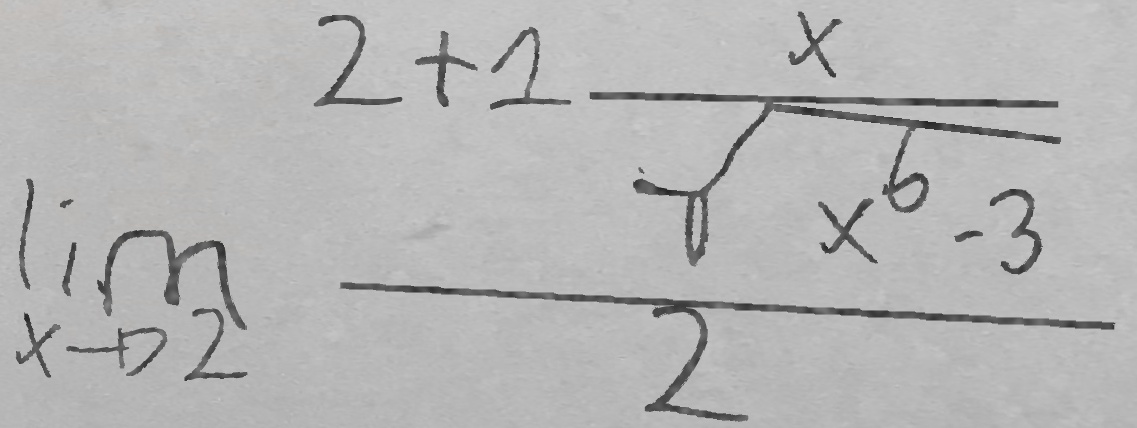 lim x→2 (2+1 x/√(x^6-3))/2